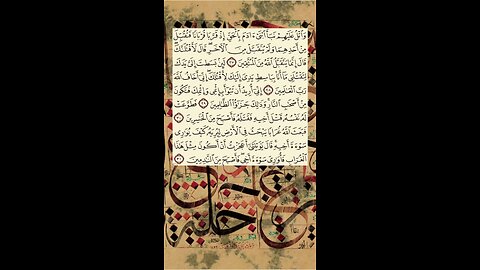 وَٱتْلُ عَلَيْهِمْ نَبَأَ ٱبْنَىْ ءَادَمَ بِٱلْحَقِّ إِذْ قَرَّبَا قُرْبَانًا فَتُقُبِّلَ
مِنْ أَحَدِهِمَا وَلَمْ يُتَقَبَّلْ مِنَ ٱلْءَاخَرِ قَالَ لَأَقْتُلَنَّكَ
قَالَ إِنَّمَا يَتَقَبَّلُ ٱللَّهُ مِنَ ٱلْمُتَّقِينَ ٢٧ لَئِنۢ بَسَطتَ إِلَىَّ يَدَكَ
لِتَقْتُلَنِى مَآ أَنَا۠ بِبَاسِطٍ يَدِىَ إِلَيْكَ لِأَقْتُلَكَ إِنِّىٓ أَخَافُ ٱللَّهَ
رَبَّ ٱلْعَـٰلَمِينَ ٢٨ إِنِّىٓ أُرِيدُ أَن تَبُوٓأَ بِإِثْمِى وَإِثْمِكَ فَتَكُونَ
مِنْ أَصْحَـٰبِ ٱلنَّارِ وَذَٰلِكَ جَزَٰٓؤُا۟ ٱلظَّـٰلِمِينَ ٢٩ فَطَوَّعَتْ
لَهُۥ نَفْسُهُۥ قَتْلَ أَخِيهِ فَقَتَلَهُۥ فَأَصْبَحَ مِنَ ٱلْخَـٰسِرِينَ ٣٠
فَبَعَثَ ٱللَّهُ غُرَابًا يَبْحَثُ فِى ٱلْأَرْضِ لِيُرِيَهُۥ كَيْفَ يُوَٰرِى
سَوْءَةَ أَخِيهِ قَالَ يَـٰوَيْلَتَىٰٓ أَعَجَزْتُ أَنْ أَكُونَ مِثْلَ هَـٰذَا
ٱلْغُرَابِ فَأُوَٰرِىَ سَوْءَةَ أَخِى فَأَصْبَحَ مِنَ ٱلنَّـٰدِمِينَ ٣١